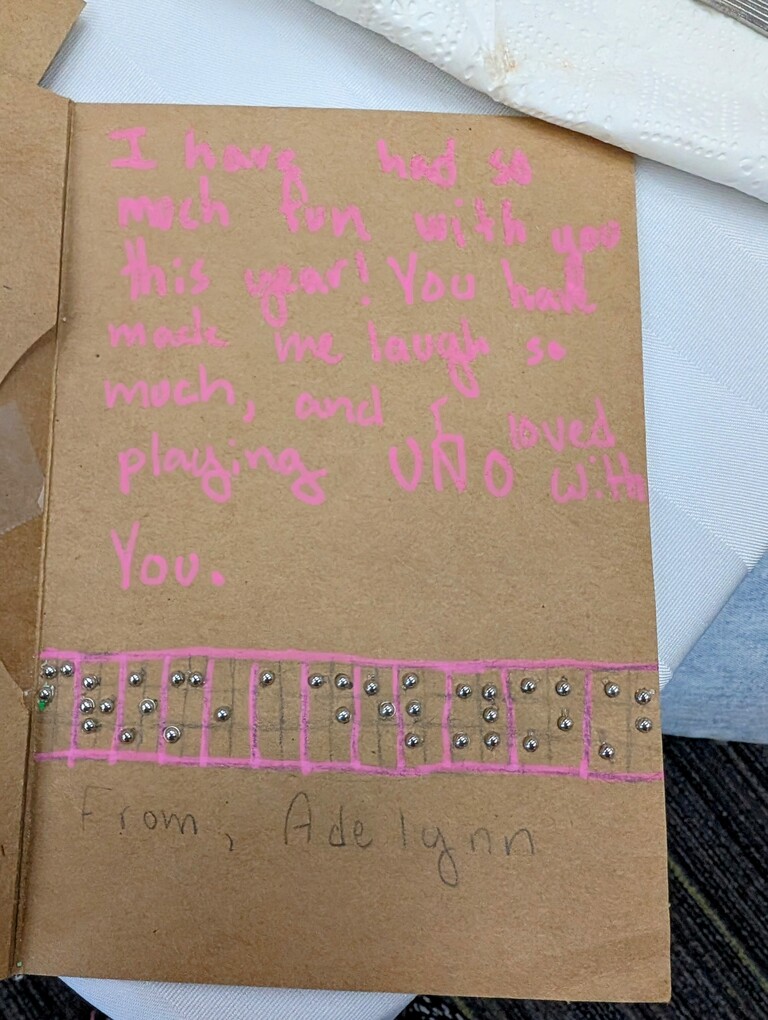 I have had so
much fun with you
this year! You have
made me laugh so
much, and I loved
playing UNO with
You.
⠋⠗⠕⠍⠂⠁⠙⠑⠇⠽⠝⠝
From, Adelynn